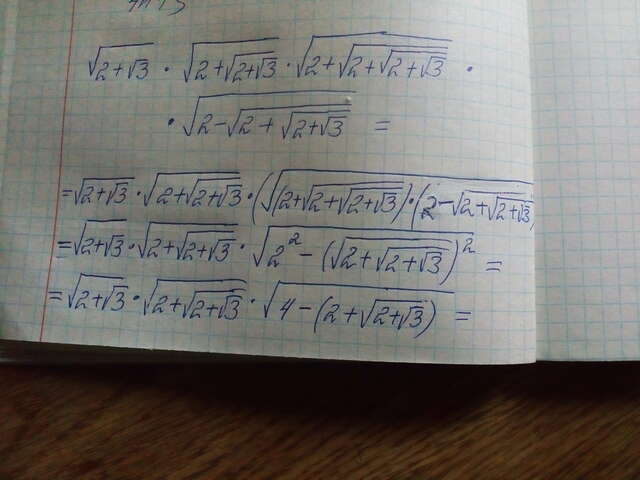 √(2+√3) · √(2+√(2+√3)) · √(2+√(2+√(2+√3))) ·
· √(2-√(2+√(2+√3))) =
= √(2+√3) · √(2+√(2+√3)) · (√((2+√(2+√(2+√3))) · (2-√(2+√(2+√3)))
= √(2+√3) · √(2+√(2+√3)) · √(2² - (√(2+√(2+√3)))²) =
= √(2+√3) · √(2+√(2+√3)) · √(4-(2+√(2+√3))) =